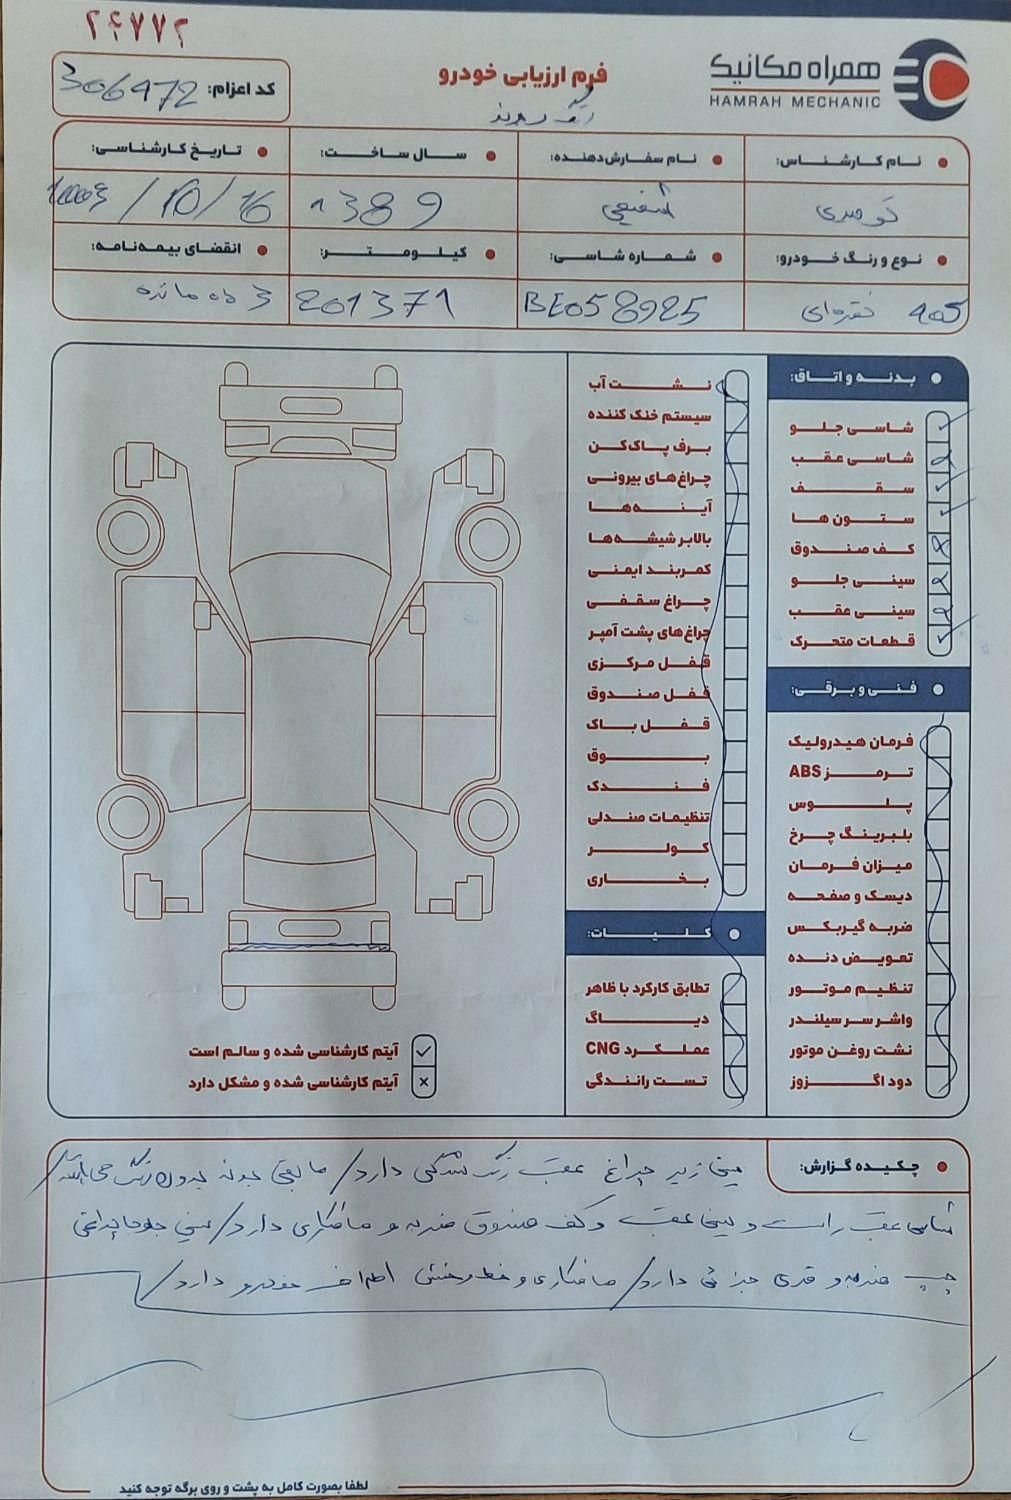 ۲۶۷۷۲
همراه مکانیک
HAMRAH MECHANIC
فرم ارزیابی خودرو
کد اعزام: 306972
نام کارشناس:
نام سفارش‌دهنده:
سال ساخت:
تاریخ کارشناسی:
1389
10/16
نوع و رنگ خودرو:
شماره شاسی:
کیلومتر:
انقضای بیمه‌نامه:
405 نقره‌ای
BE058925
201371
3 ماه مانده
بدنه و اتاق:
شاسی جلو
شاسی عقب
سقف
ستون ها
کف صندوق
سینی جلو
سینی عقب
قطعات متحرک
فنی و برقی:
فرمان هیدرولیک
ترمز ABS
پلوس
بلبرینگ چرخ
میزان فرمان
دیسک و صفحه
ضربه گیربکس
تعویض دنده
تنظیم موتور
واشر سر سیلندر
نشت روغن موتور
دود اگزوز
نشت آب
سیستم خنک کننده
برف پاک‌کن
چراغ‌های بیرونی
آینه‌ها
بالابر شیشه‌ها
کمربند ایمنی
چراغ سقفی
چراغ‌های پشت آمپر
قفل مرکزی
قفل صندوق
قفل باک
بوق
فندک
تنظیمات صندلی
کولر
بخاری
کلیات:
تطابق کارکرد با ظاهر
دیاگ
عملکرد CNG
تست رانندگی
آیتم کارشناسی شده و سالم است
آیتم کارشناسی شده و مشکل دارد
چکیده گزارش:
سینی زیر چراغ عقب رنگ شدگی دارد/ مابقی بدنه بدون رنگ می‌باشد/
شاسی عقب راست و سینی عقب و کف صندوق ضربه و صافکاری دارد/ سینی جلو چراغی
چپ ضربه و قری جزئی دارد/ صافکاری و خط و خش اطراف خودرو دارد/
لطفا بصورت کامل به پشت و روی برگه توجه کنید